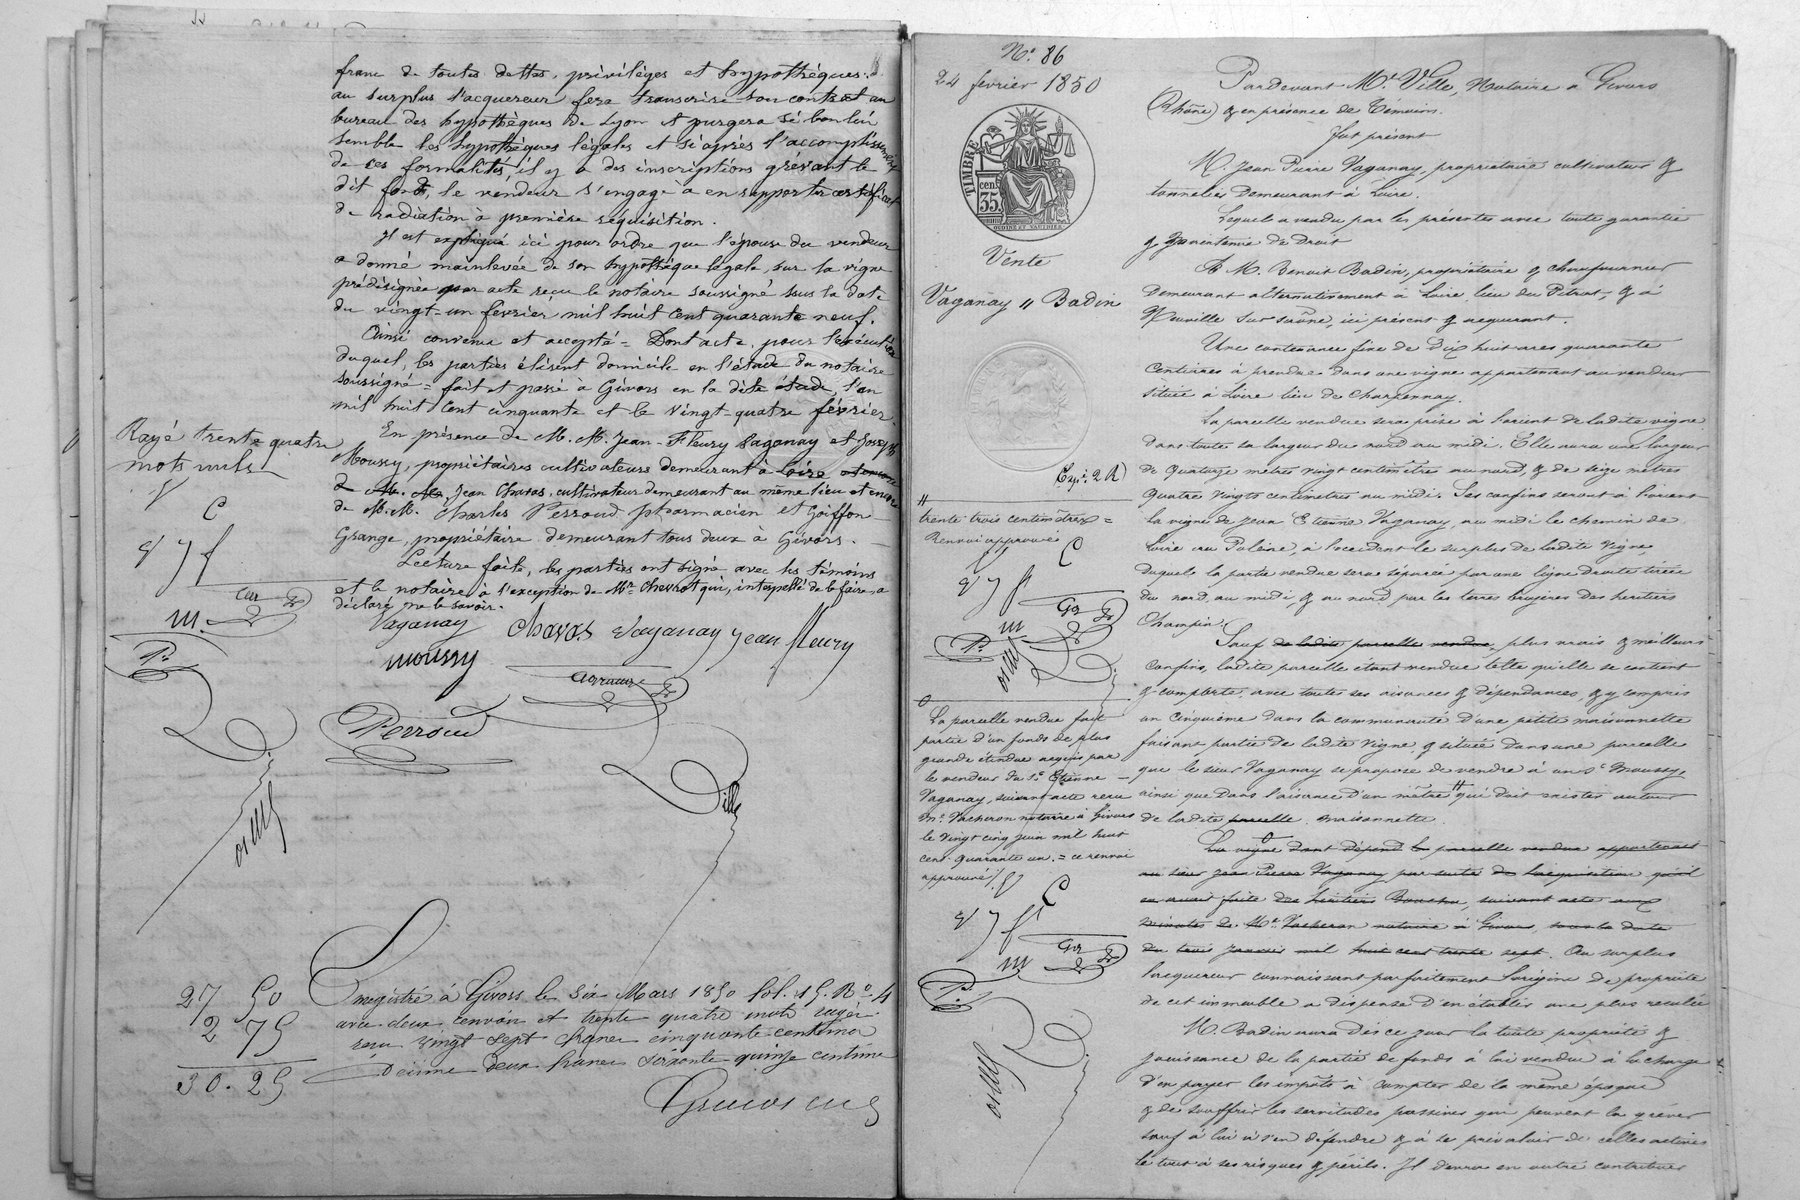 franc de toutes dettes, privilèges et hypothèques.
au surplus l'acquereur fera transcrire son contrat au
bureau des hypothèques de Lyon et purgera si bon lui
semble les hypothèques légales et si après l'accomplissement
de ces formalités, il y a des inscriptions grévant le
dit fonds, le vendeur s'engage à en rapporter certificat
de radiation à première réquisition.
Il est expliqué ici pour ordre que l'épouse du vendeur
a donné mainlevée de son hypothèque légale, sur la vigne
prédésignée par acte reçu le notaire soussigné sous la date
du vingt-un février mil huit cent quarante neuf.
Ainsi convenu et accepté = Dont acte, pour l'exécution
duquel, les parties élisent domicile en l'étude du notaire
soussigné = fait et passé à Givors en la dite étude, l'an
mil huit cent cinquante et le vingt-quatre février.
En présence de M. M. Jean-Fleury Vaganay et Joseph
Moussy, propriétaires cultivateurs demeurant à Loire
Jean Chavas, cultivateur demeurant au même lieu et encore
de M. M. Charles Perroud pharmacien et Goiffon
Grange, propriétaire demeurant tous deux à Givors.
Lecture faite, les parties ont signé avec les témoins
et le notaire à l'exception de Mr Chevrot qui, interpellé de le faire, a
déclaré ne le savoir.
Rayé trente quatre
mots nuls
Vaganay Chavas Vaganay jean fleury
moussy
Perroud
Ville
27 50
2 75
30.25
Enregistré à Givors le Six Mars 1850 fol. 15. Ro 4
avec deux renvois et trente quatre mots rayés
reçu vingt sept francs cinquante centimes
Décime deux francs soixante quinze centimes
No 86
24 fevrier 1850
TIMBRE
35
cen.
OUDINÉ ET VAUTHIER
Vente
Vaganay // Badin
Exp: 2 R)
//
trente trois centimètres =
Renvoi approuvé
La parcelle vendue fait
partie d'un fonds de plus
grande étendue acquis par
le vendeur du Sr Etienne
Vaganay, suivant acte reçu
Me Vacheron notaire à Givors
le vingt cinq juin mil huit
cent quarante un. = ce renvoi
approuvé
Pardevant Me Ville, Notaire à Givors
(Rhône) & en présence de Témoins.
fut présent
M. Jean Pierre Vaganay, propriétaire cultivateur &
tonnelier demeurant à Loire.
Lequel a vendu par les présentes avec toute garantie
& maintenue de Droit
A M. Benoit Badin, propriétaire & chaufournier
Demeurant alternativement à Loire, lieu du Pitrat, & à
Neuville sur saône, ici présent & acquerant.
Une contenance fixe de dix huit ares quarante
Centiares à prendre dans une vigne appartenant au vendeur
située à Loire lieu de Charzennay.
La parcelle vendue sera prise à l'orient de ladite vigne
dans toute sa largeur du nord au midi. Elle aura une largeur
de quatorze mètres vingt centimètres au nord, & de seize mètres
quatre vingts centimètres au midi. Ses confins seront à l'orient
la vigne de Jean Etienne Vaganay, au midi le chemin de
Loire au Puleine, à l'occident le surplus de ladite vigne,
duquel la partie vendue sera séparée par une ligne droite tirée
du nord au midi & au nord par les terres bruyères des héritiers
Champin.
Sauf de ladite parcelle vendue, plus vrais & meilleurs
confins, ladite parcelle étant vendue telle qu'elle se contient
& comporte, avec toutes ses aisances & dépendances, & y compris
un cinquième dans la communauté d'une petite maisonnette
faisant partie de ladite vigne, & située dans une parcelle
que le sieur Vaganay se propose de vendre à un Sr Moussy,
ainsi que dans l'aisance d'un mètre // qui doit exister autour
de ladite parcelle maisonnette.
La vigne dont dépend la parcelle vendue appartenait
au sieur Jean Pierre Vaganay par suite de l'acquisition qu'il
en avait faite des héritiers Bouchu, suivant acte aux
minutes de Me Vacheron notaire à Givors, sous la date
du trois janvier mil huit cent trente sept. Au surplus
l'acquereur connaissant parfaitement l'origine de propriété
de cet immeuble a dispensé d'en établir une plus reculée
M. Badin aura dès ce jour la toute propriété &
jouissance de la partie de fonds à lui vendue à la charge
d'en payer les impôts à compter de la même époque
& de souffrir les servitudes passives qui peuvent la gréver
sauf à lui à s'en défendre & à se prévaloir de celles actives
le tout à ses risques & périls. Il devra en outre contribuer